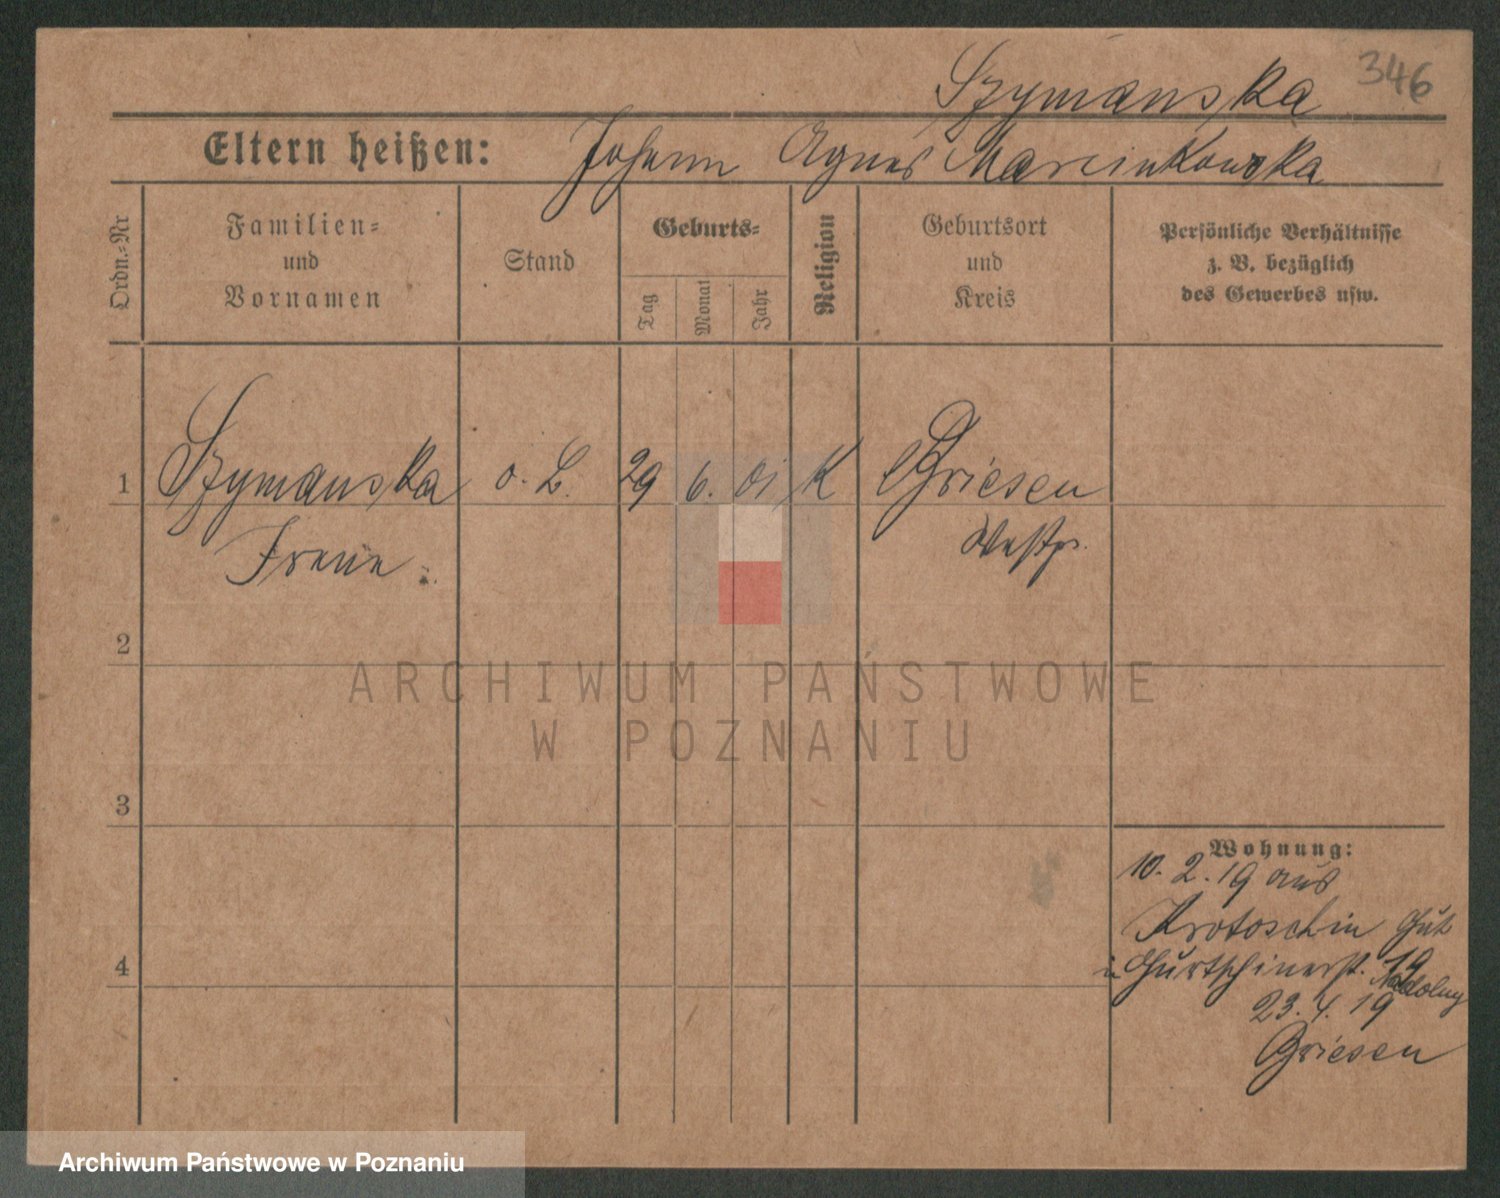 346
Szymanska
Eltern heißen: Johann Agnes Marcinkowska
Ordn.-Nr
Familien-
und
Vornamen
Stand
Geburts-
Tag
Monat
Jahr
Religion
Geburtsort
und
Kreis
Persönliche Verhältnisse
z. B. bezüglich
des Gewerbes usw.
1 Szymanska o. B. 29 6. 01 K Griesen
Irene Westpr.
2
3
4
Wohnung:
10. 2. 19 aus
Krotoschin Gut
Gurtschinerst. 19
Nadolny
23. 4. 19
Griesen
ARCHIWUM PAŃSTWOWE
W POZNANIU
Archiwum Państwowe w Poznaniu